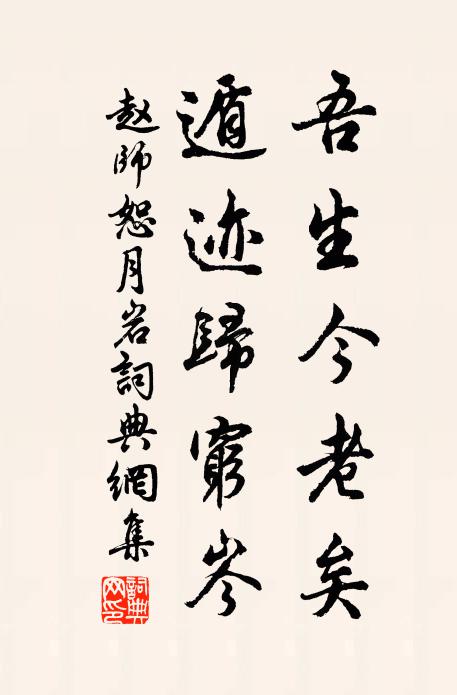 吾生今老矣
遁迹歸窮岑
赵師恕月岩詞典網集
詞典网印